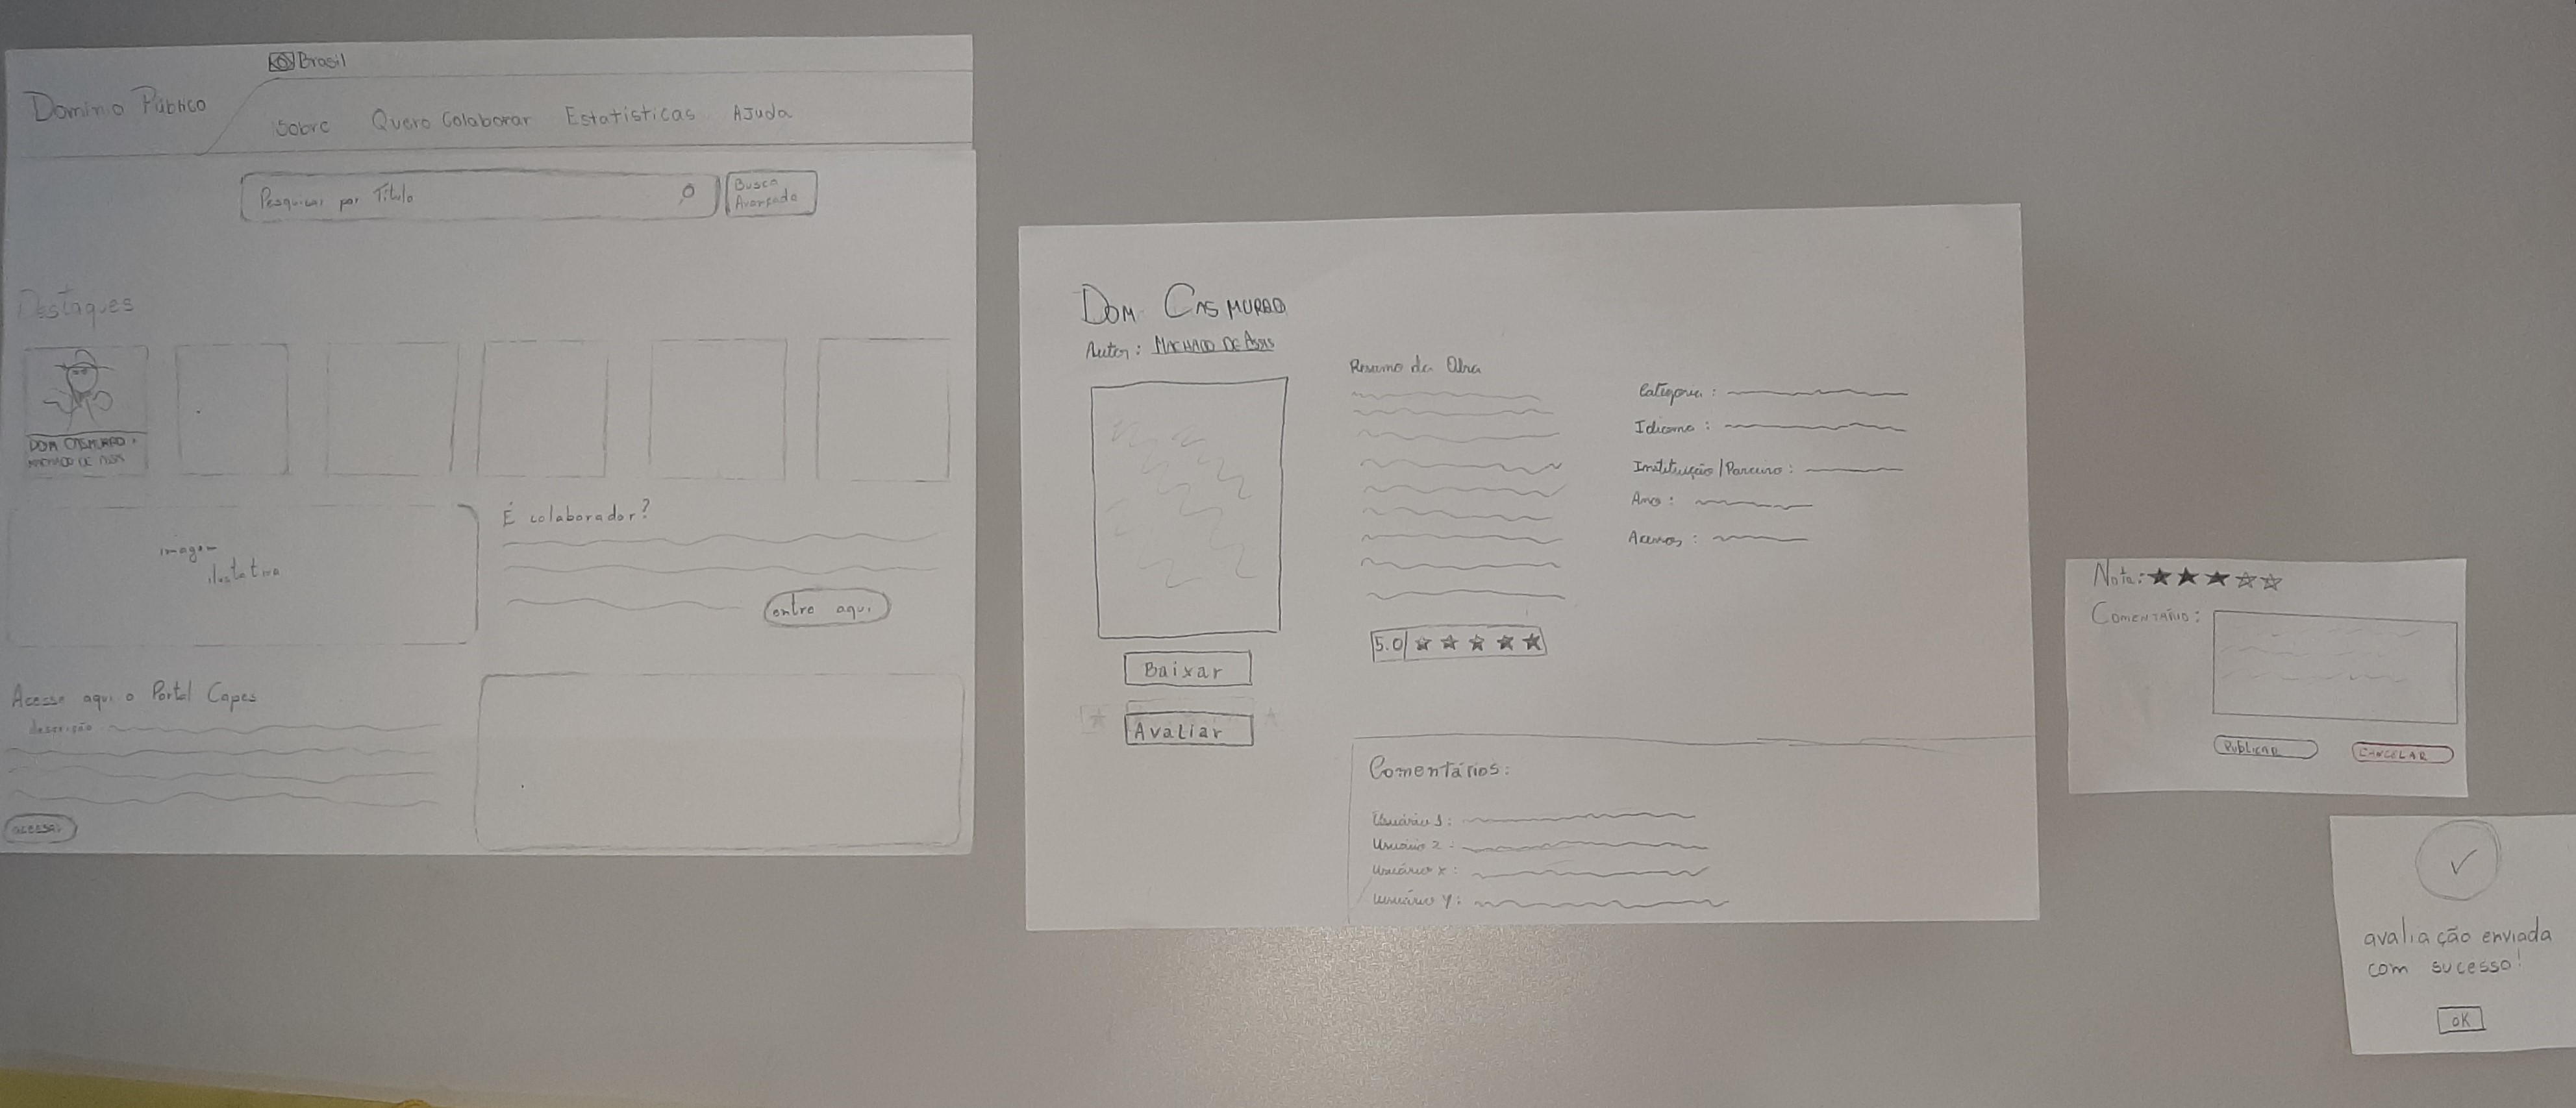 Brasil
Domínio Público
Sobre Quero Colaborar Estatísticas Ajuda
Pesquisar por Título
Busca
Avançada
Destaques
DOM CASMURRO
MACHADO DE ASSIS
imagem
ilustativa
É colaborador?
entre aqui
Acesse aqui o Portal Capes
descrição
acessar
DOM CASMURRO
Autor: MACHADO DE ASSIS
Baixar
Avaliar
Resumo da Obra
5.0
Categoria:
Idioma:
Instituição/Parceiro:
Ano:
Acessos:
Comentários:
Usuário 1:
Usuário 2
Usuário x:
Usuário y:
Nota:
COMENTÁRIO:
PUBLICAR
CANCELAR
avaliação enviada
com sucesso!
OK